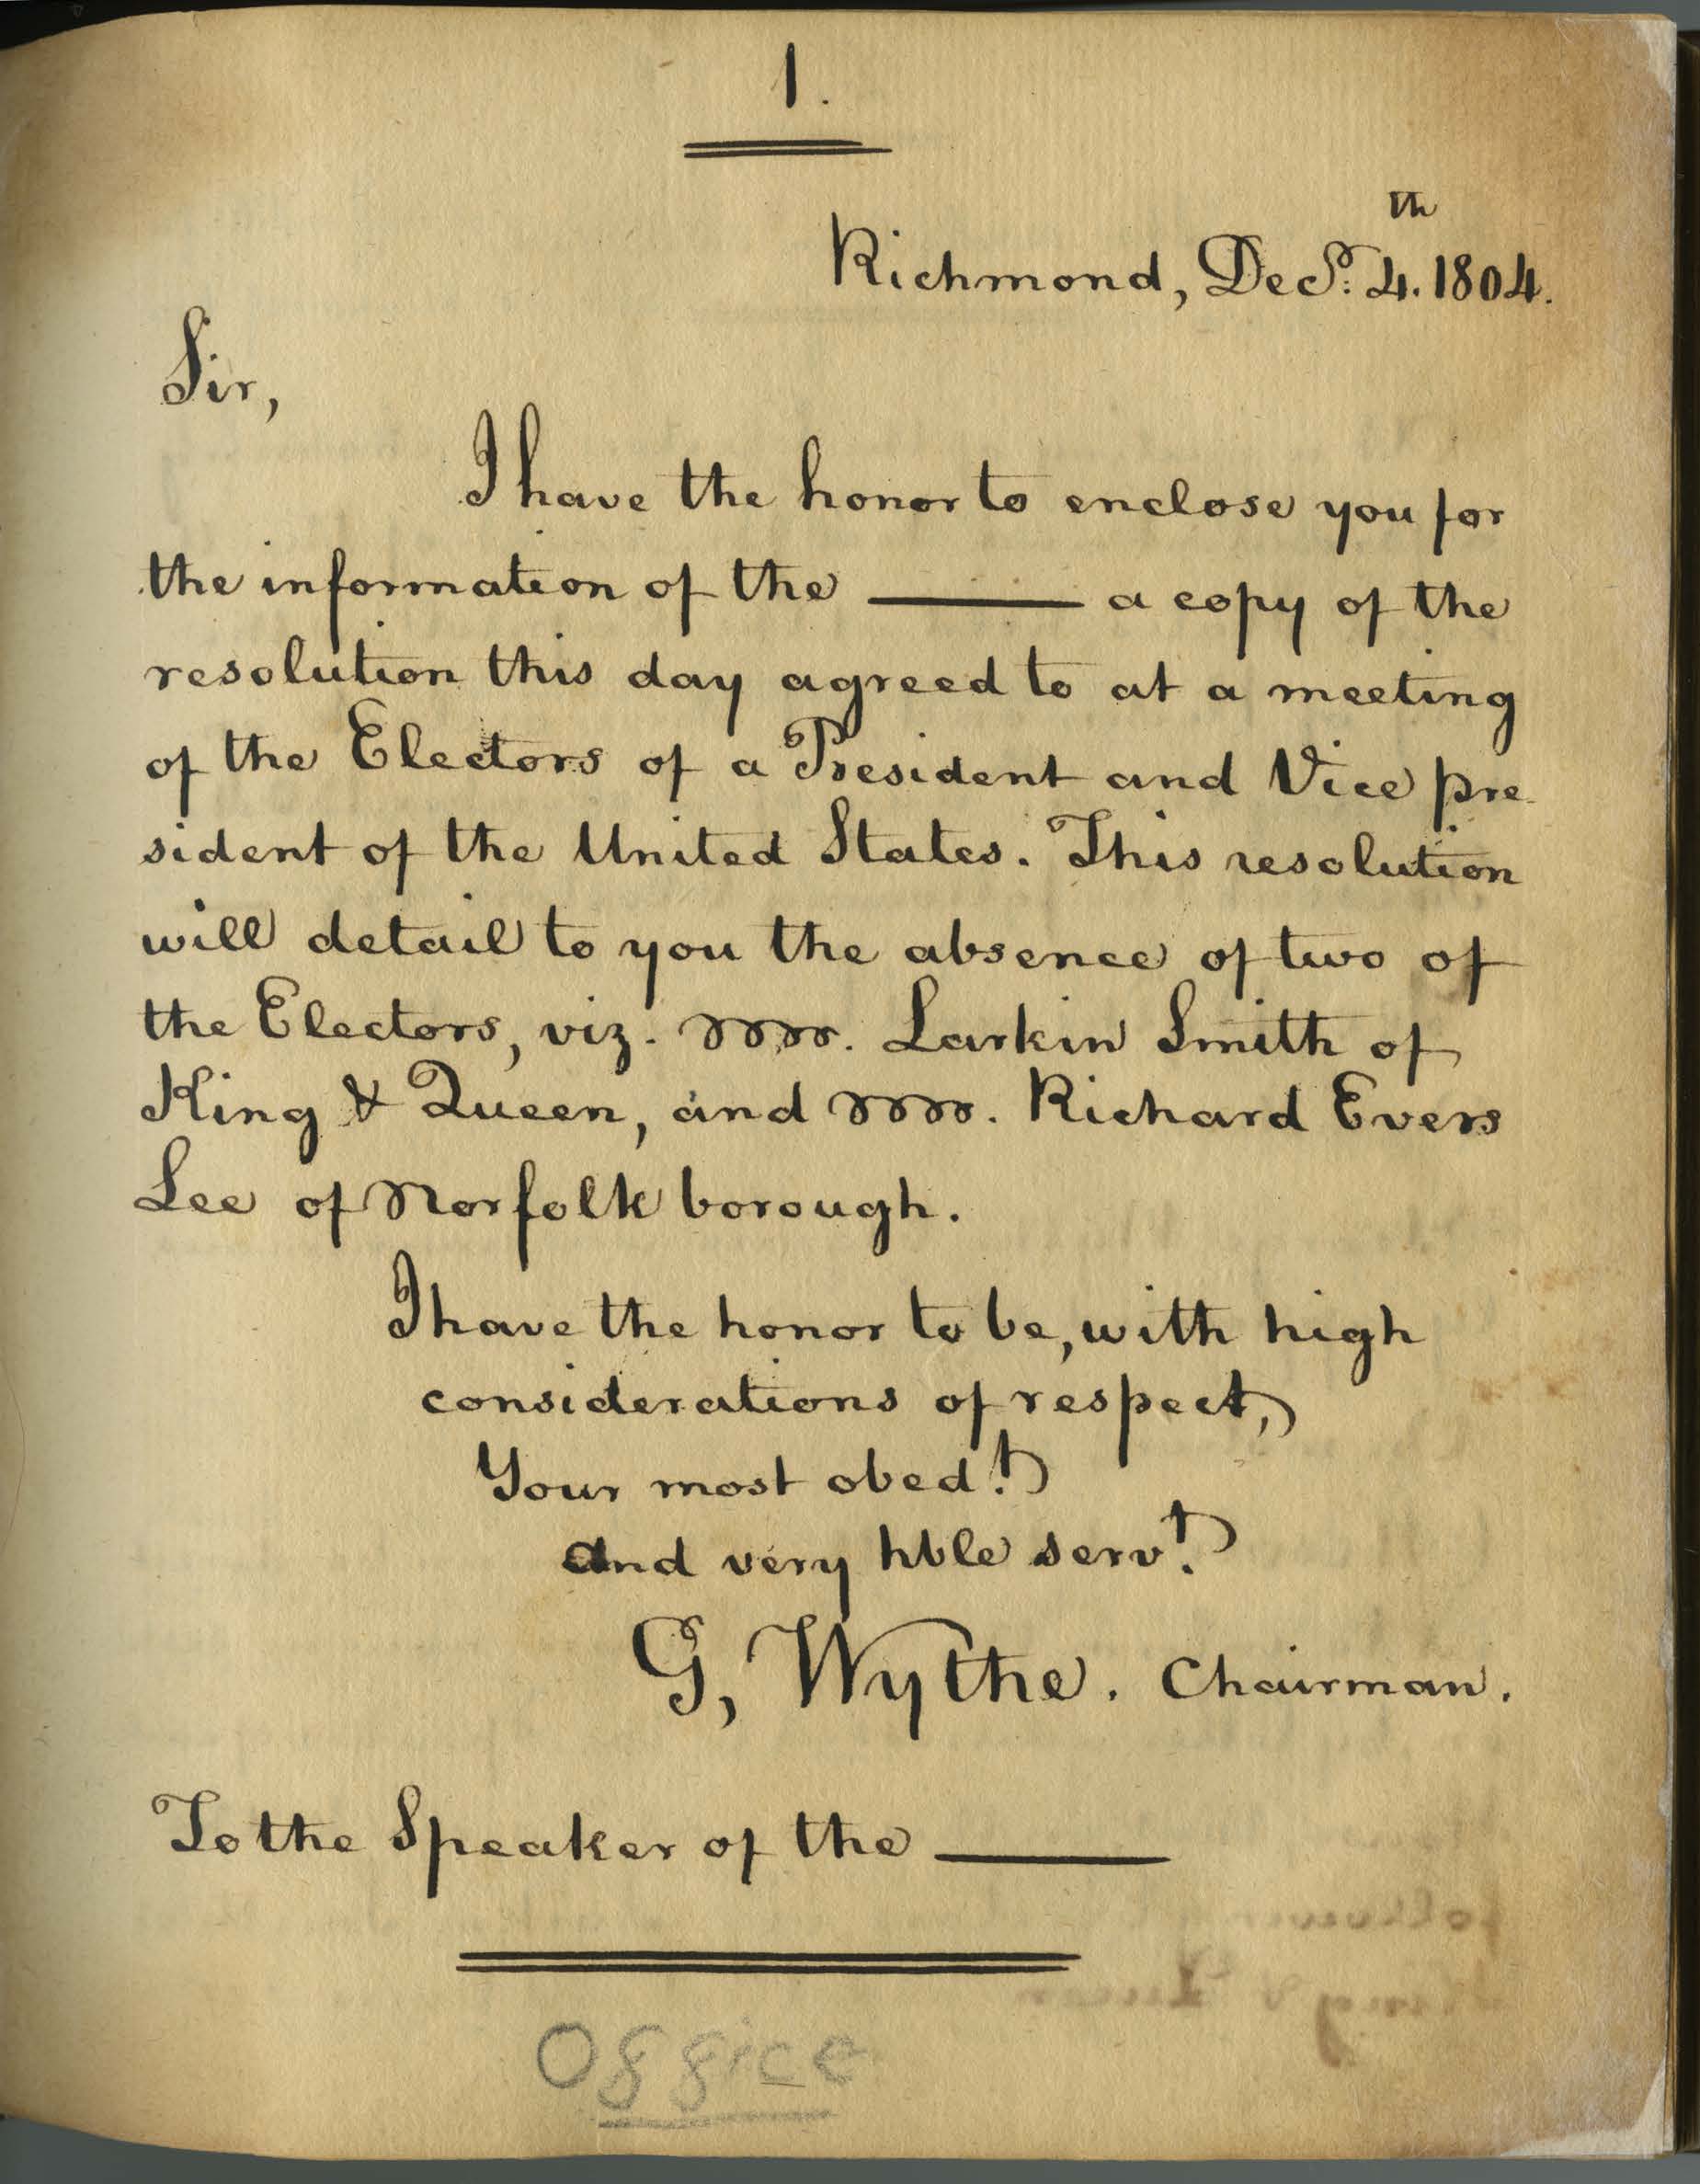 1.
Richmond, Decr. 4th. 1804.
Sir,
I have the honor to enclose you for
the information of the ——— a copy of the
resolution this day agreed to at a meeting
of the Electors of a President and Vice pre-
sident of the United States. This resolution
will detail to you the absence of two of
the Electors, viz. Mr. Larkin Smith of
King & Queen, and Mr. Richard Evers
Lee of Norfolk borough.
I have the honor to be, with high
considerations of respect,
Your most obedt.
And very hble servt.
G, Wythe. Chairman.
To the Speaker of the ———
Office